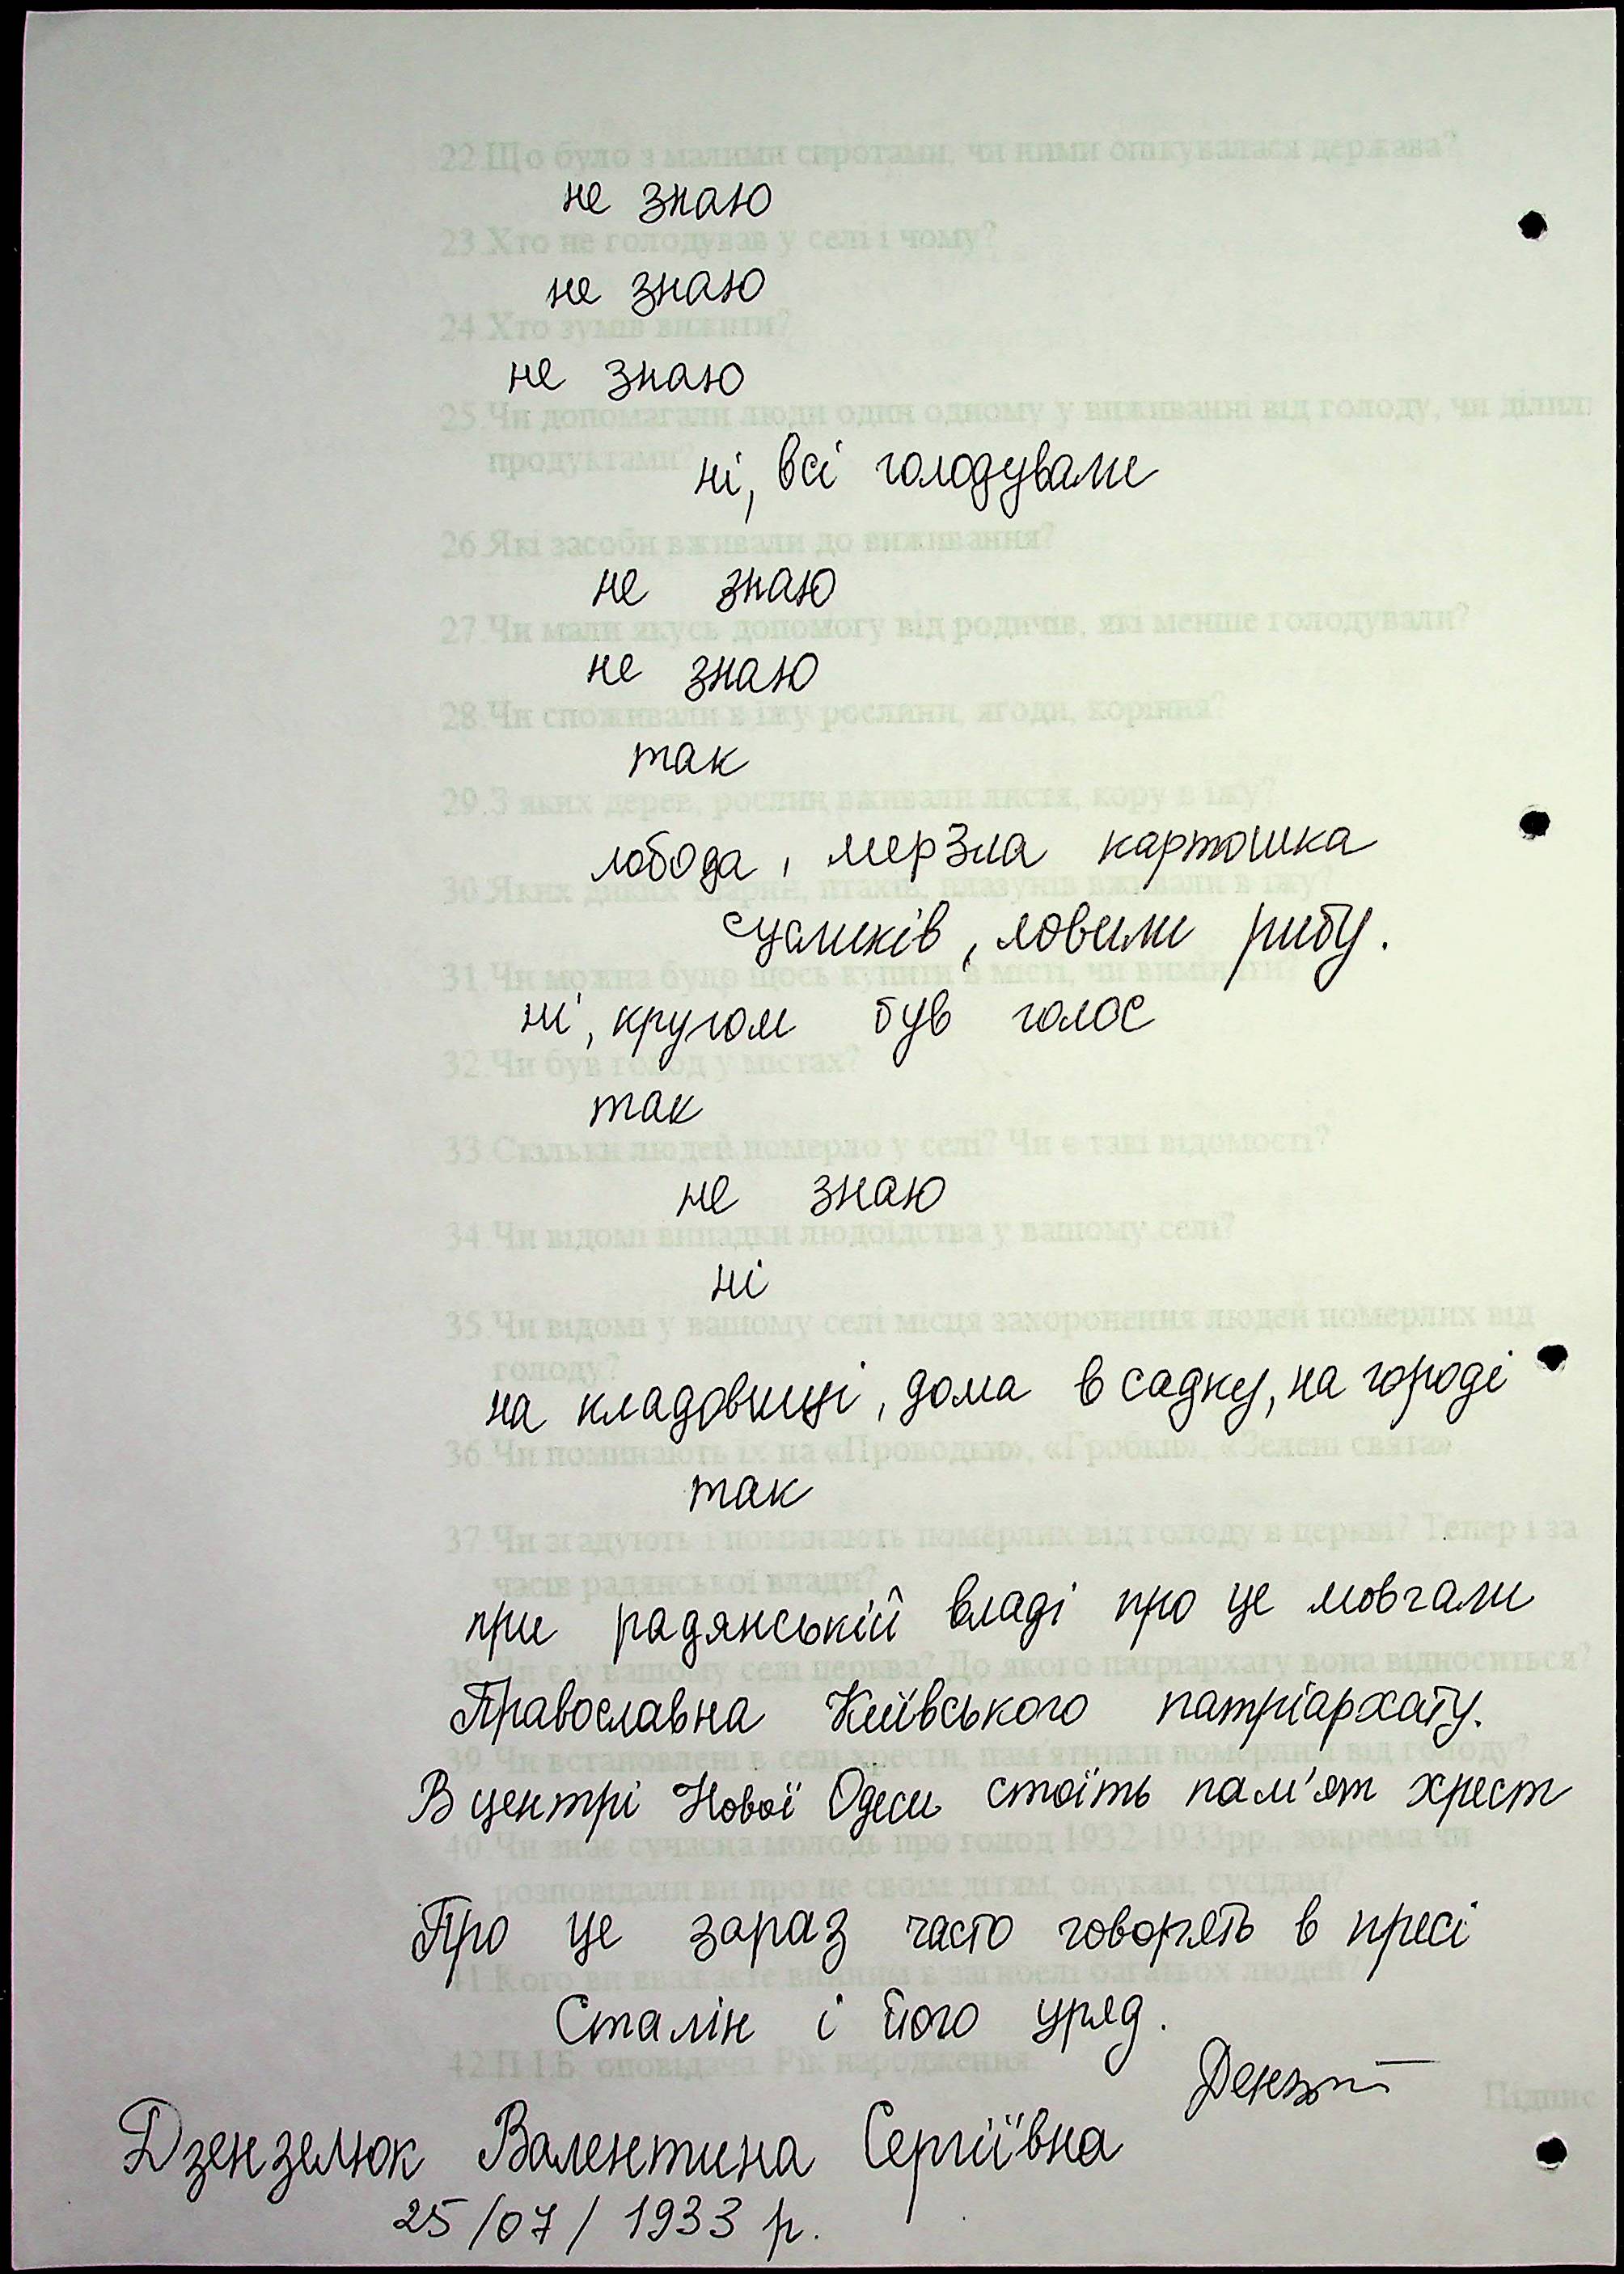 22.Що було з малими сиротами, чи ними опікувалася держава?
не знаю
23.Хто не голодував у селі і чому?
не знаю
24.Хто зумів вижити?
не знаю
25.Чи допомагали люди один одному у виживанні від голоду, чи ділили
продуктами?
ні, всі голодували
26.Які засоби вживали до виживання?
не знаю
27.Чи мали якусь допомогу від родичів, які менше голодували?
не знаю
28.Чи споживали в їжу рослини, ягоди, коріння?
так
29.З яких дерев, рослин вживали листя, кору в їжу?
лобода, мерзла картошка
30.Яких диких тварин, птахів, плазунів вживали в їжу?
сусликів, ловили рибу.
31.Чи можна було щось купити в місті, чи виміняти?
ні, кругом був голос
32.Чи був голод у містах?
так
33.Скільки людей померло у селі? Чи є такі відомості?
не знаю
34.Чи відомі випадки людоїдства у вашому селі?
ні
35.Чи відомі у вашому селі місця захоронення людей померлих від
голоду?
на кладовищі, дома в садку, на городі
36.Чи поминають їх на «Проводию», «Гробки», «Зелені свята»
так
37.Чи згадують і поминають померлих від голоду в церкві? Тепер і за
часів радянської влади?
при радянській владі про це мовчали
38.Чи є у вашому селі церква? До якого патріархату вона відноситься?
Православна Київського патріархату.
39.Чи встановлені в селі хрести, пам'ятники померлим від голоду?
В центрі Нової Одеси стоїть пам'ят хрест
40.Чи знає сучасна молодь про голод 1932-1933рр., зокрема чи
розповідали ви про це своїм дітям, онукам, сусідам?
Про це зараз часто говорять в пресі
41.Кого ви вважаєте винним в загибелі багатьох людей?
Сталін і його уряд.
42.П.І.Б. оповідача. Рік народження.
Підпис
Дзензелюк Валентина Сергіївна
25/07/1933 р.